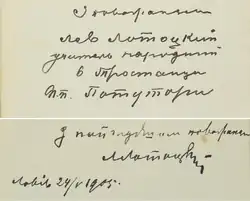 З поважанєм
Лев Лотоцкий
учитель народний
в Тростянци
п. Потутори
З найглубшим поважанєм
Лотоцкий
Львів 24/V 1905.